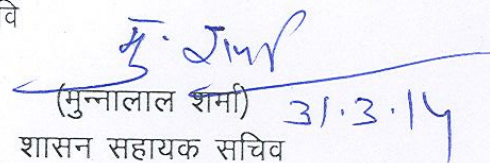 वि
मु. शर्मा
(मुन्नालाल शर्मा) 31.3.14
शासन सहायक सचिव